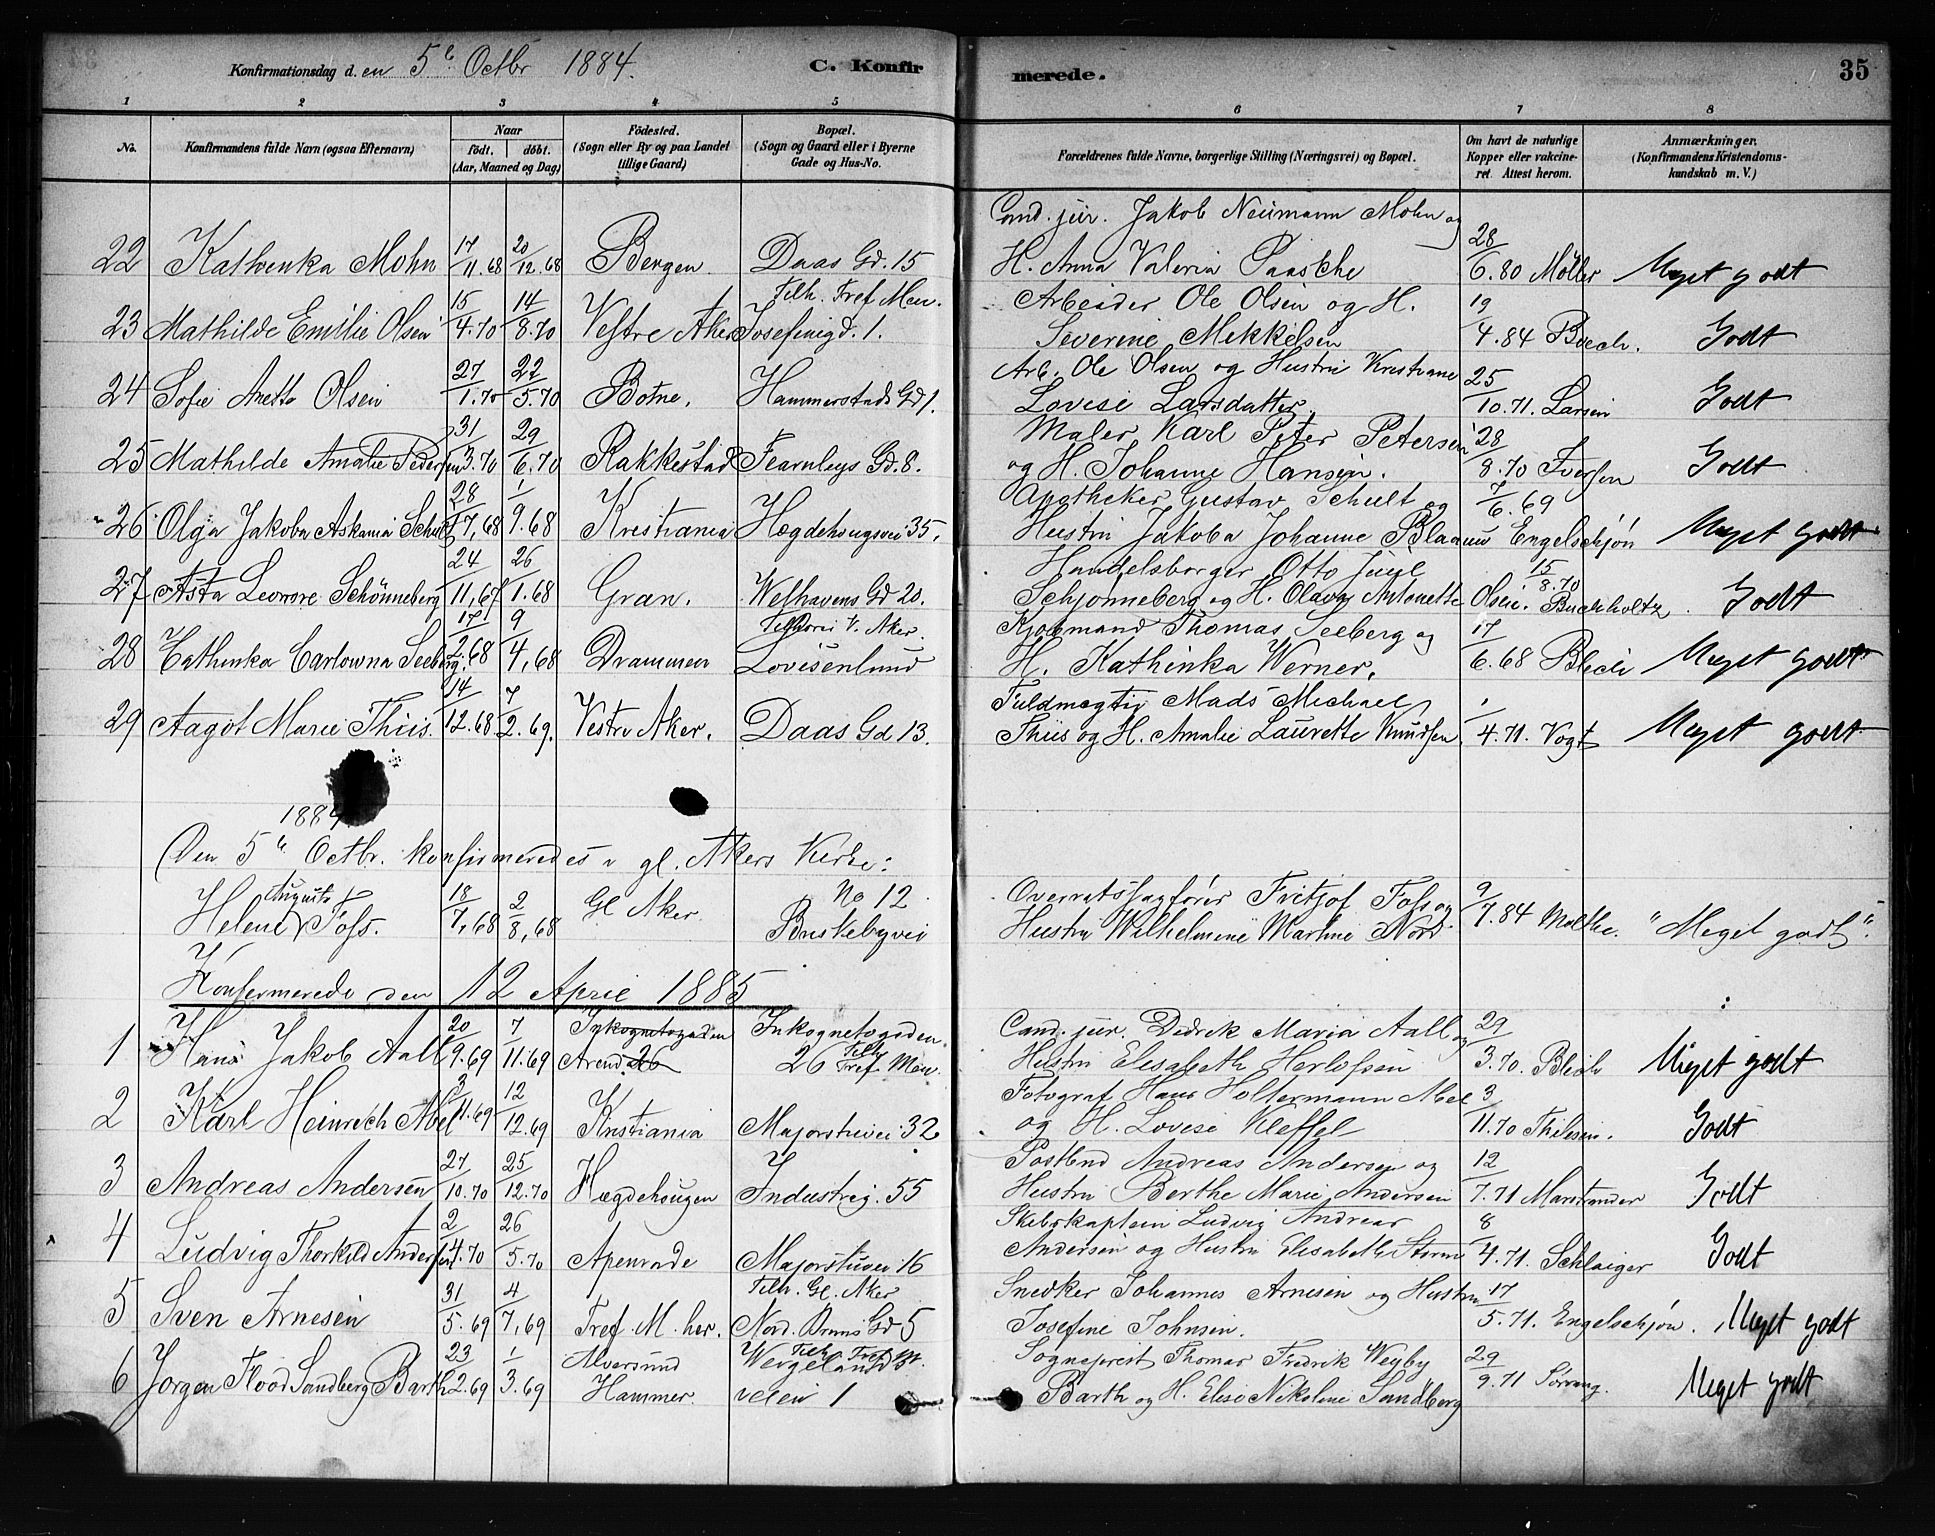 Konfirmationsdag d. en 5te Octbr 1884. C. Konfirmerede. 35
1 2 3 4 5 6 7 8
No. Konfirmandens fulde Navn (ogsaa Efternavn) Naar Født. døbt. (Aar, Maaned og Dag) Fødested. (Sogn eller By og paa Landet tillige Gaard) Bopæl. (Sogn og Gaard eller i Byerne Gade og Hus-No. Forældrenes fulde Navne, borgerlige Stilling (Næringsvei) og Bopæl. Om havt de naturlige Kopper eller vakcineret. Attest herom. Anmærkninger. (Konfirmandens Kristendomskundskab m. V.)
Cand. jur. Jakob Neumann Mohn og
22 Kathenka Mohn 17/11.68 20/12.68 Bergen Daas Gd. 15 H. Anna Valeria Paasche 28/6.80 Möller Meget godt
Tilh. Tref Men. Arbeider Ole Olsen og H.
23 Mathilde Emilie Olsen 15/4.70 14/8.70 Vestre Aker Josefinegd. 1. Severine Mikkelsen 19/4.84 Buch. Godt
Arb. Ole Olsen og Hustru Kristiane
24 Sofie Anette Olsen 27/1.70 22/5.70 Botne. Hammerstads Gd 1. Lovise Larsdatter 25/10.71. Larsen Godt
Maler Karl Peter Petersen
25 Mathilde Amalie Pedersen 31/3.70 29/6.70 Rakkestad Fearnleys Gd. 8. og H. Johanne Hansen. 28/8.70 Iversen Godt
Apotheker Gustav Schult og
26 Olga Jakoba Askania Schult 28/7.68 1/9.68 Kristiania Hægdehaugsvei 35. Hustru Jakoba Johanne Blaauw 7/6.69 Engelschjön Meget godt
Handelsborger Otto Juul
27 Asta Leonore Schönneberg 24/11.67 26/1.68 Gran. Welhavens Gd 20. Schjonneberg og H. Olava Antonette Olsen. 15/8.70 Buchholtz. Godt
Tilhører V. Aker. Kjobmand Thomas Seeberg og
28 Cathinka Carlowna Seeberg. 17/2.68 9/4.68 Drammen Lovisenlund H. Kathinka Werner. 17/6.68 Blich Meget godt
Fuldmægtig Mads Michael
29 Aagot Marie Thiis. 14/12.68 7/2.69. Vestre Aker. Daas Gd 13. Thiis og H. Amalie Laurette Knudsen. 1/4.71. Vogt Meget godt
1884
Den 5te Octbr. konfirmeredes i gl. Akers Kirke:
Auguste No 12 Overretssagfører Fritjof Foss og
Helene Foss. 18/7.68 2/8.68 Gl Aker. Briskebyvei Hustru Wilhelmine Martine Nord 9/7.84 Malthe. "Meget godt".
Konfirmerede den 12 April 1885
Inkognetogaden Inkognetogaden Cand. jur. Didrik Maria Aall og
1 Hans Jakob Aall 20/9.69 7/11.69 Arend. 26 26 Tilh Tref. Men. Hustru Elisabeth Herlofsen 29/3.70. Blich Meget godt
Fotograf Hans Holtermann Abel
2 Karl Heinrich Abel 3/11.69 12/12.69 Kristiania Majorstuvei 32 og H. Lovise Kleffel 3/11.70 Thilesen. Godt
Postbud Andreas Andersen og
3 Andreas Andersen 27/10.70 25/12.70 Hægdehaugen Industrig. 55 Hustru Berthe Marie Andersen 12/7.71 Marstrander Godt
Skibskaptein Ludvig Andreas
4 Ludvig Thorkild Andersen 2/4.70 26/5.70 Apenrade Majorstuvei 16 Andersen og Hustru Elisabeth Storm 8/4.71. Schlaiger Godt
Tilh. Gl. Aker Snedker Johannes Arnesen og Hustru
5 Sven Arnesen 31/5.69 4/7.69 Tref. M. her. Nord. Bruns Gd 5 Josefine Johnsen. 17/5.71. Engelschjön. Meget godt
Alversund Tilh. Tref M. Wergelands Sogneprest Thomas Fredrik Weyby
6 Jørgen Flood Sandberg Barth 23/2.69 1/3.69 Hammer. veien 1 Barth og H. Elise Nikoline Sandberg 29/9.71 Meget godt